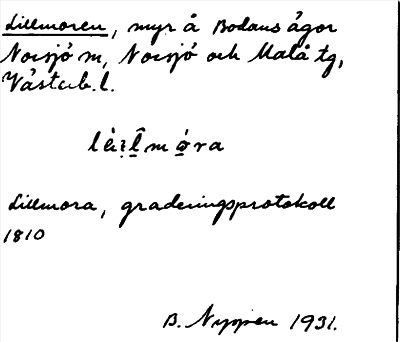 Lillmoren, myr å Bodans ägor
Norsjö sn, Norsjö och Malå tg,
Västerb. l.
Lillmora, graderingsprotokoll
1810
B. Nyman 1931.